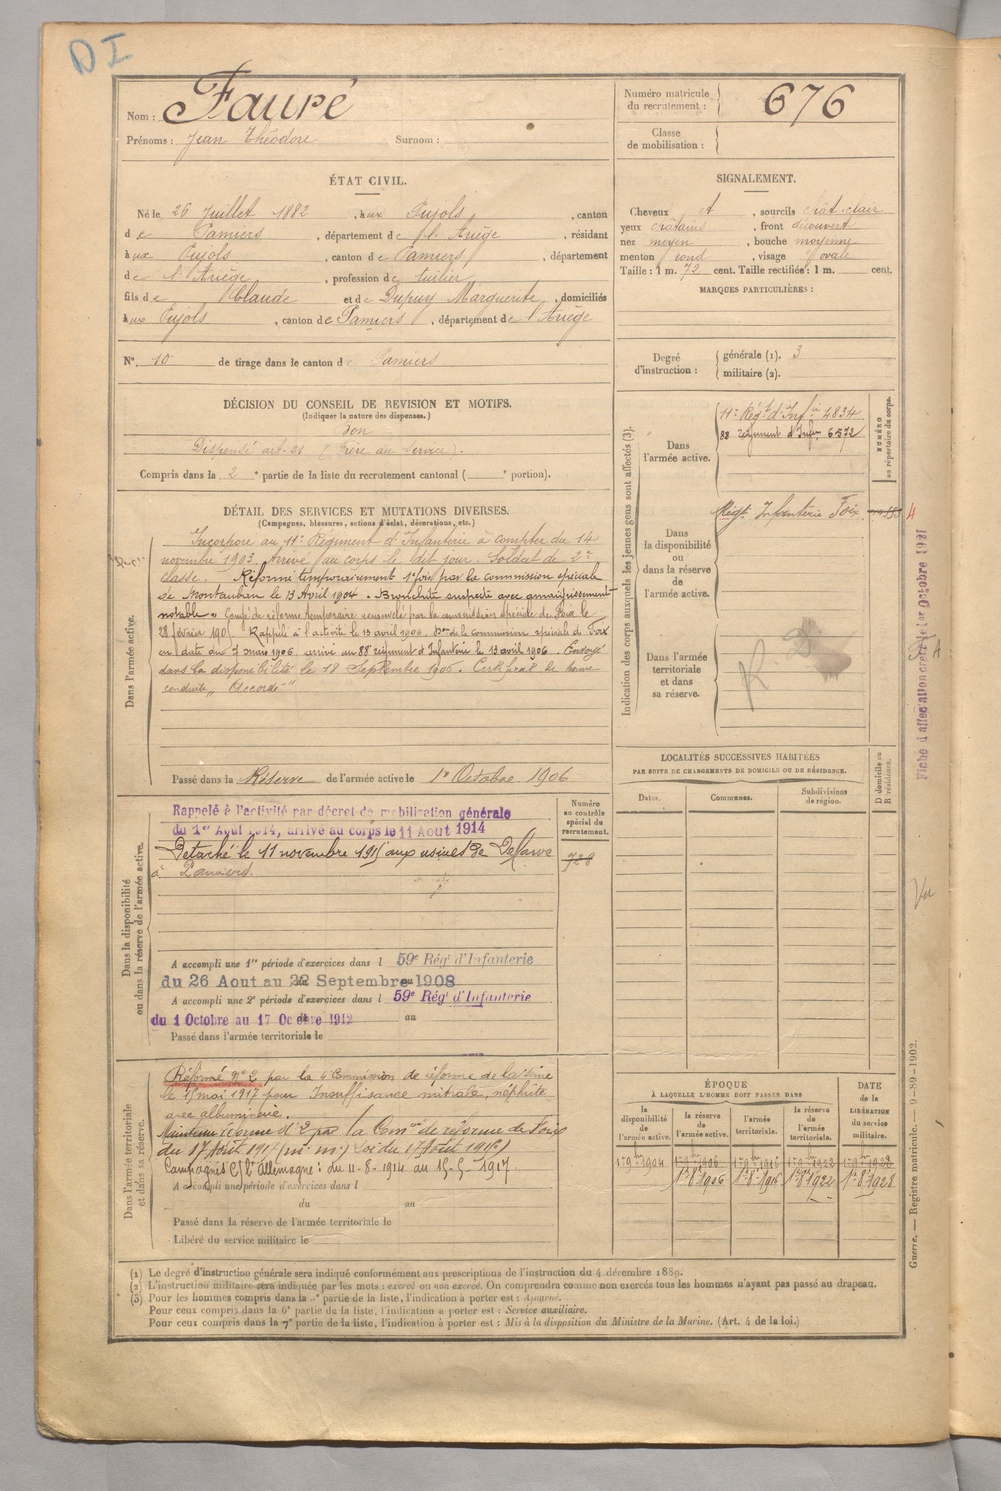 D I
Nom : Fauré
Prénoms : Jean Théodore Surnom :
Numéro matricule du recrutement : 676
Classe de mobilisation :
ÉTAT CIVIL.
Né le 26 Juillet 1882, à ux Pujols, canton
d e Pamiers, département de l'Ariège, résidant
à ux Pujols, canton de Pamiers, département
de l'Ariège, profession de tuilier
fils de Claude et de Dupuy Marguerite, domiciliés
à ux Pujols, canton de Pamiers, département de l'Ariège
N° 10 de tirage dans le canton de Pamiers
SIGNALEMENT.
Cheveux et, sourcils chât. clair
yeux châtains, front découvert
nez moyen, bouche moyenne
menton rond, visage ovale
Taille : 1 m. 72 cent. Taille rectifiée : 1 m. cent.
MARQUES PARTICULIÈRES :
Degré d'instruction : générale (1). 3
militaire (2).
DÉCISION DU CONSEIL DE REVISION ET MOTIFS.
(Indiquer la nature des dispenses.)
Bon
Dispensé art. 21 (frère au service).
Compris dans la 2e partie de la liste du recrutement cantonal ( e portion).
DÉTAIL DES SERVICES ET MUTATIONS DIVERSES.
(Campagnes, blessures, actions d'éclat, décorations, etc.)
Dans l'armée active.
Incorporé au 11e Régiment d'Infanterie à compter du 14
novembre 1903. Arrivé au corps le dit jour. Soldat de 2e
classe. Réformé temporairement 1e fois par la commission spéciale
de Montauban le 13 Avril 1904. "Bronchite suspecte avec amaigrissement
notable" Congé de réforme temporaire renouvelé par la commission spéciale de Foix le
28 février 1905. Rappelé à l'activité le 13 avril 1906. Don de la commission spéciale de Foix
en date du 7 mars 1906. arrivé au 88 régiment d'Infanterie le 13 avril 1906. Envoyé
dans la disponibilité le 18 Septembre 1906. Certificat de bonne
conduite "Accordé"
Passé dans la Réserve de l'armée active le 1er Octobre 1906
Indication des corps auxquels les jeunes gens sont affectés (3).
Dans l'armée active. 11e Régt d'Infie 4834
88 régiment d'Infie 6572
NUMÉRO au répertoire du corps.
Dans la disponibilité ou dans la réserve de l'armée active. Régt Infanterie Foix
Dans l'armée territoriale et dans sa réserve.
R
Fiche d'affectation série 1er Octobre 1921
Vu
LOCALITÉS SUCCESSIVES HABITÉES
PAR SUITE DE CHANGEMENTS DE DOMICILE OU DE RÉSIDENCE.
Dates. Communes. Subdivisions de région. D domicile ou R résidence.
Dans la disponibilité ou dans la réserve de l'armée active.
Rappelé à l'activité par décret de mobilisation générale
du 1er Août 1914, arrivé au corps le 11 Aout 1914
Détaché le 11 novembre 1915 aux usines de
à Pamiers.
Numéro au contrôle spécial du recrutement.
728
A accompli une 1re période d'exercices dans l 59e Régt d'Infanterie
du 26 Aout au 22 Septembre 1908
A accompli une 2e période d'exercices dans l 59e Régt d'Infanterie
du 1 Octobre au 17 Octobre 1912 au
Passé dans l'armée territoriale le
Dans l'armée territoriale et dans sa réserve.
Réformé n° 2 par la 4e Commission de réforme de la Seine
le 15 mai 1917 pour Insuffisance mitrale, néphrite
avec albuminurie.
Maintenu réformé n° 2 par la Comon de réforme de Foix
du 17 Août 1917 Loi du 17 Août 1915)
Campagnes c/ l'Allemagne : du 11-8-1914 au 15-5-1917.
A accompli une période d'exercices dans l
du au
Passé dans la réserve de l'armée territoriale le
Libéré du service militaire le
ÉPOQUE
À LAQUELLE L'HOMME DOIT PASSER DANS
DATE de la LIBÉRATION du service militaire.
la disponibilité de l'armée active. la réserve de l'armée active. l'armée territoriale. la réserve de l'armée territoriale.
1er 9bre 1904 1er 9bre 1906 1er 9bre 1916 1er 9bre 1922 1er 9bre 1928
1er 8bre 1906 1er 8bre 1916 1er 8bre 1922 1er 8bre 1928
(1) Le degré d'instruction générale sera indiqué conformément aux prescriptions de l'instruction du 4 décembre 1889.
(2) L'instruction militaire sera indiquée par les mots : exercé ou non exercé. On comprendra comme non exercés tous les hommes n'ayant pas passé au drapeau.
(3) Pour les hommes compris dans la partie de la liste, l'indication à porter est : Ajourné.
Pour ceux compris dans la 6e partie de la liste, l'indication à porter est : Service auxiliaire.
Pour ceux compris dans la 7e partie de la liste, l'indication à porter est : Mis à la disposition du Ministre de la Marine. (Art. 4 de la loi.)
Guerre. — Registre matricule. — 9-89-1902.